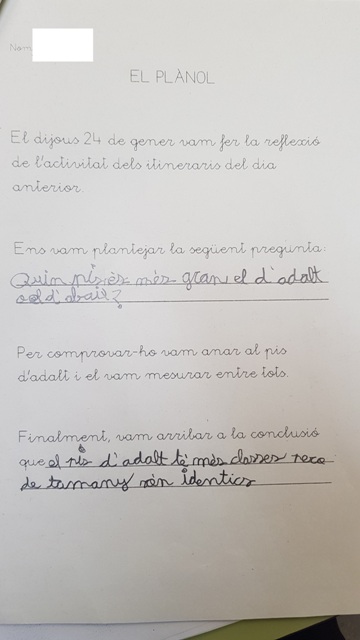 Nom
EL PLÀNOL
El dijous 24 de gener vam fer la reflexió
de l'activitat dels itineraris del dia
anterior.
Ens vam plantejar la següent pregunta:
Quin pis és més gran el d'adalt
o el d'abaix?
Per comprovar-ho vam anar al pis
d'adalt i el vam mesurar entre tots.
Finalment, vam arribar a la conclusió
que el pis d'adalt té més classes pero
de tamany són identics